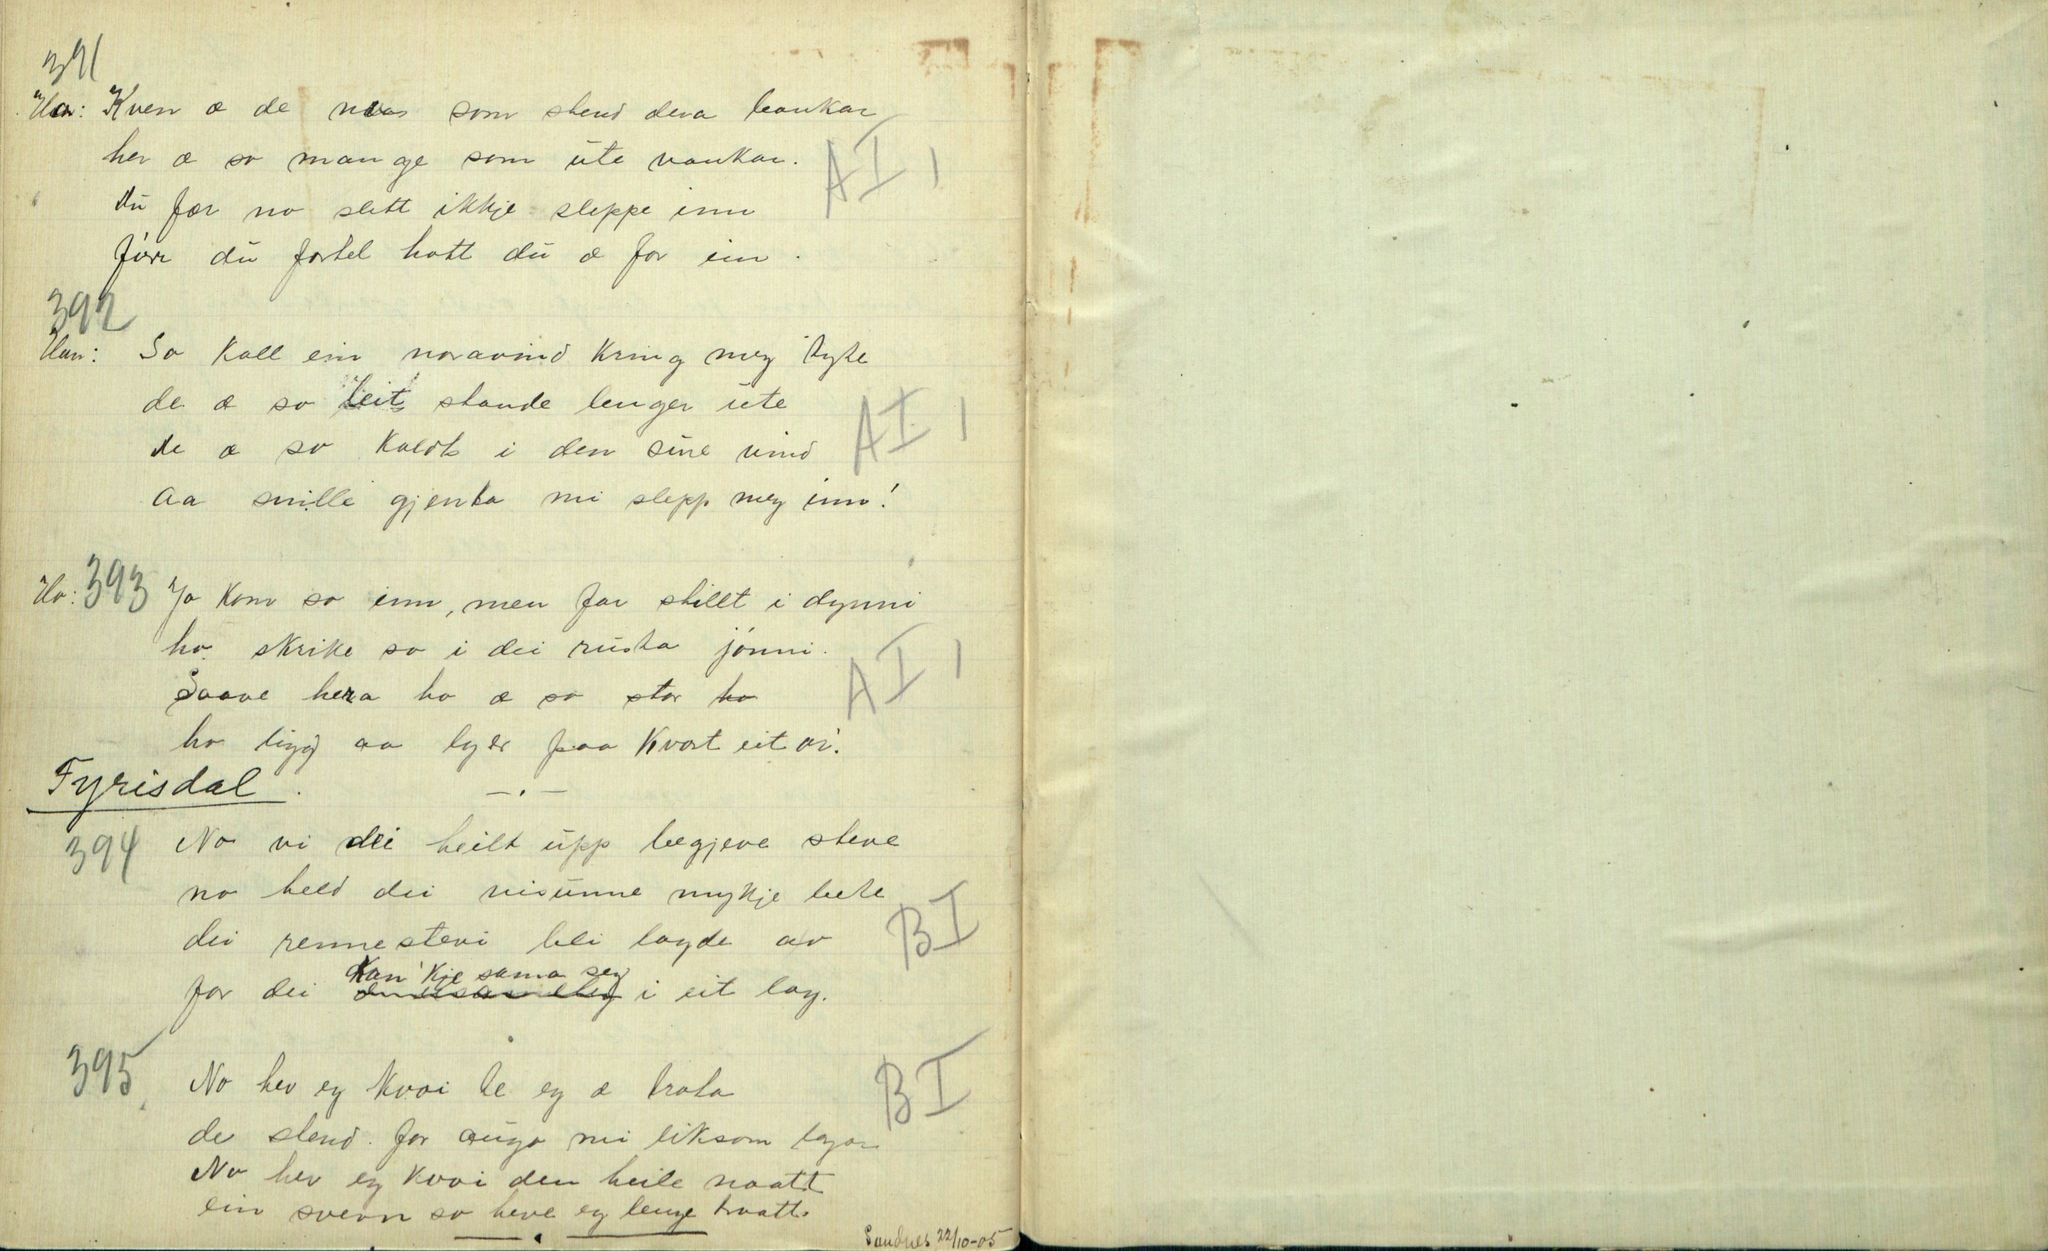 391
Ho: Kven æ de no som stend dera bankar
her æ so mange som ute vankar.
du fær no slett ikkje sleppe inn
fürr du fortel hott du æ for ein.
AI 1
392
Han: So kall ein noravind kring meg tyte
de æ so leit stande lenger ute
de æ so kaldt i den sure vind
aa snille gjenta mi slepp meg inn!
AI 1
Ho: 393 Ja kom so inn, men far stillt i dynni
ho skrike so i dei rusta jónni.
Saave hera ho æ so stor
ho ligg aa lyer paa kvart eit or.
AI 1
Fyrisdal.
394 No vi dei heilt upp begjeve steve
no held dei visunne mykje bete
dei rennestevi bli lagde av
for dei kan'kje sama seg i eit lag.
BI
395 No hev eg kvoi te eg æ trøta
de stend for augo mi liksom
No hev eg kvoi den heile naatt
ein svevn so heve eg lenge traatt.
BI
Sandnes 22/10-05